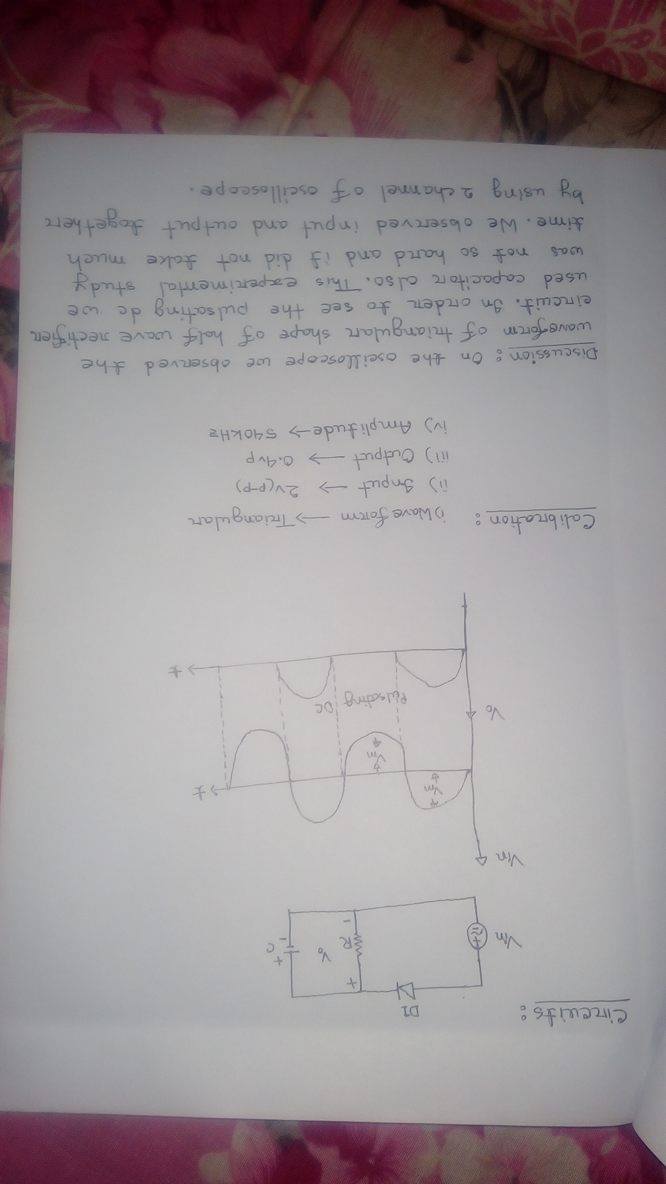 Circuits:
D1
Vin
+
R
-
Vo
+
-
C
Vin
Vm
Vm
t
Vo
Pulsating DC
t
Calibration:
i) Wave form → Triangular
ii) Input → 2v(P-P)
iii) Output → 0.4vp
iv) Amplitude → 540kHz
Discussion: On the oscilloscope we observed the
waveform of triangular shape of half wave rectifier
circuit. In order to see the pulsating dc we
used capacitor also. This experimental study
was not so hard and it did not take much
time. We observed input and output together
by using 2 channel of oscilloscope.